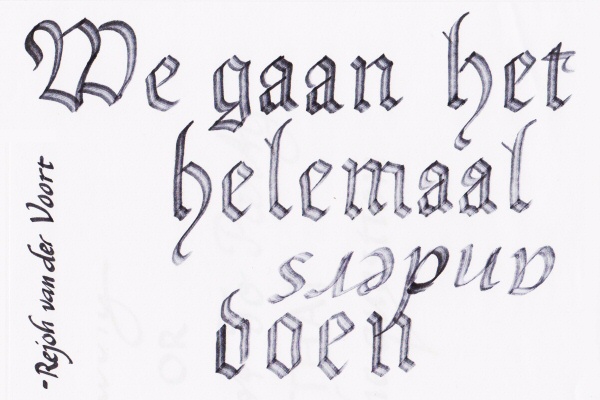 We gaan het
helemaal
anders
doen
-Rejoh van der Voort